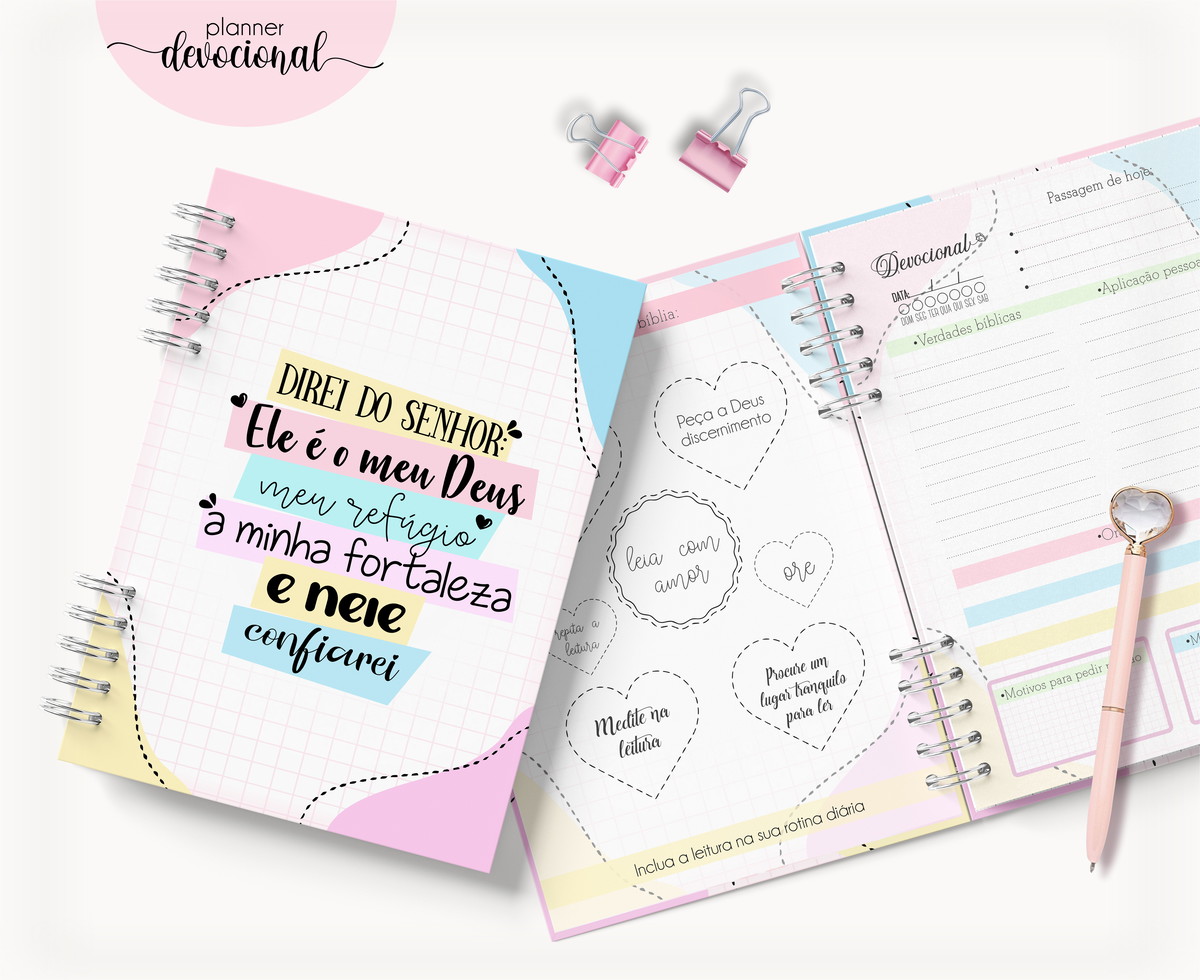 planner
devocional
DIREI DO SENHOR:
Ele é o meu Deus
meu refúgio
a minha fortaleza
e nele
confiarei
bíblia:
Peça a Deus
discernimento
leia com
amor
ore
repita a
leitura
Medite na
leitura
Procure um
lugar tranquilo
para ler
Inclua a leitura na sua rotina diária
Devocional
DATA:
DOM SEG TER QUA QUI SEX SAB
Passagem de hoje:
•Verdades bíblicas
•Aplicação pessoa
•Motivos para pedir